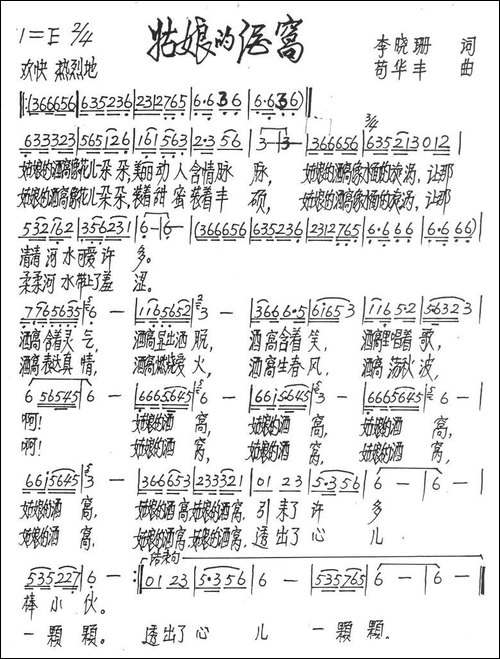 1=E 2/4
姑娘的酒窝
李晓珊 词
欢快 热烈地
苟华丰 曲
‖:(366656|635236|2312765|6·636|(6·636)‖
3/4
633323|565126|161563|2·356|3-3-|366656|635213012|
姑娘的酒窝像花儿朵朵,美丽动人含情脉脉,姑娘的酒窝像河面的漩涡,让那
姑娘的酒窝像花儿朵朵,装着甜蜜装着丰硕,姑娘的酒窝像河面的漩涡,让那
532162|356231|6-6-|(366656|635236|2312765|6·666|6·666)|
清清河水可爱许多。
柔柔河水带上了羞涩。
7765635|6-|1165652|3-|3666·5|61653|1165·2|56323|
酒窝含着灵气,酒窝显出洒脱,酒窝含着笑,酒窝里唱着歌,
酒窝表达真情,酒窝燃烧爱火,酒窝生春风,酒窝荡秋波,
6 56545|6-|6665645|6-|6615645|3-|6665645|6-|
啊!姑娘的酒窝,姑娘的酒窝,姑娘的酒窝,
啊!姑娘的酒窝,姑娘的酒窝,姑娘的酒窝,
6615645|3-|366653|233321|01 23|5·356|6-|6-|
姑娘的酒窝,姑娘的酒窝姑娘的酒窝,引来了许多
姑娘的酒窝,姑娘的酒窝姑娘的酒窝,透出了心儿
结束句
535227|6-:‖01 23|5·356|6-|535765|6-|6-‖
棒小伙。
一颗颗。透出了心儿一颗颗。